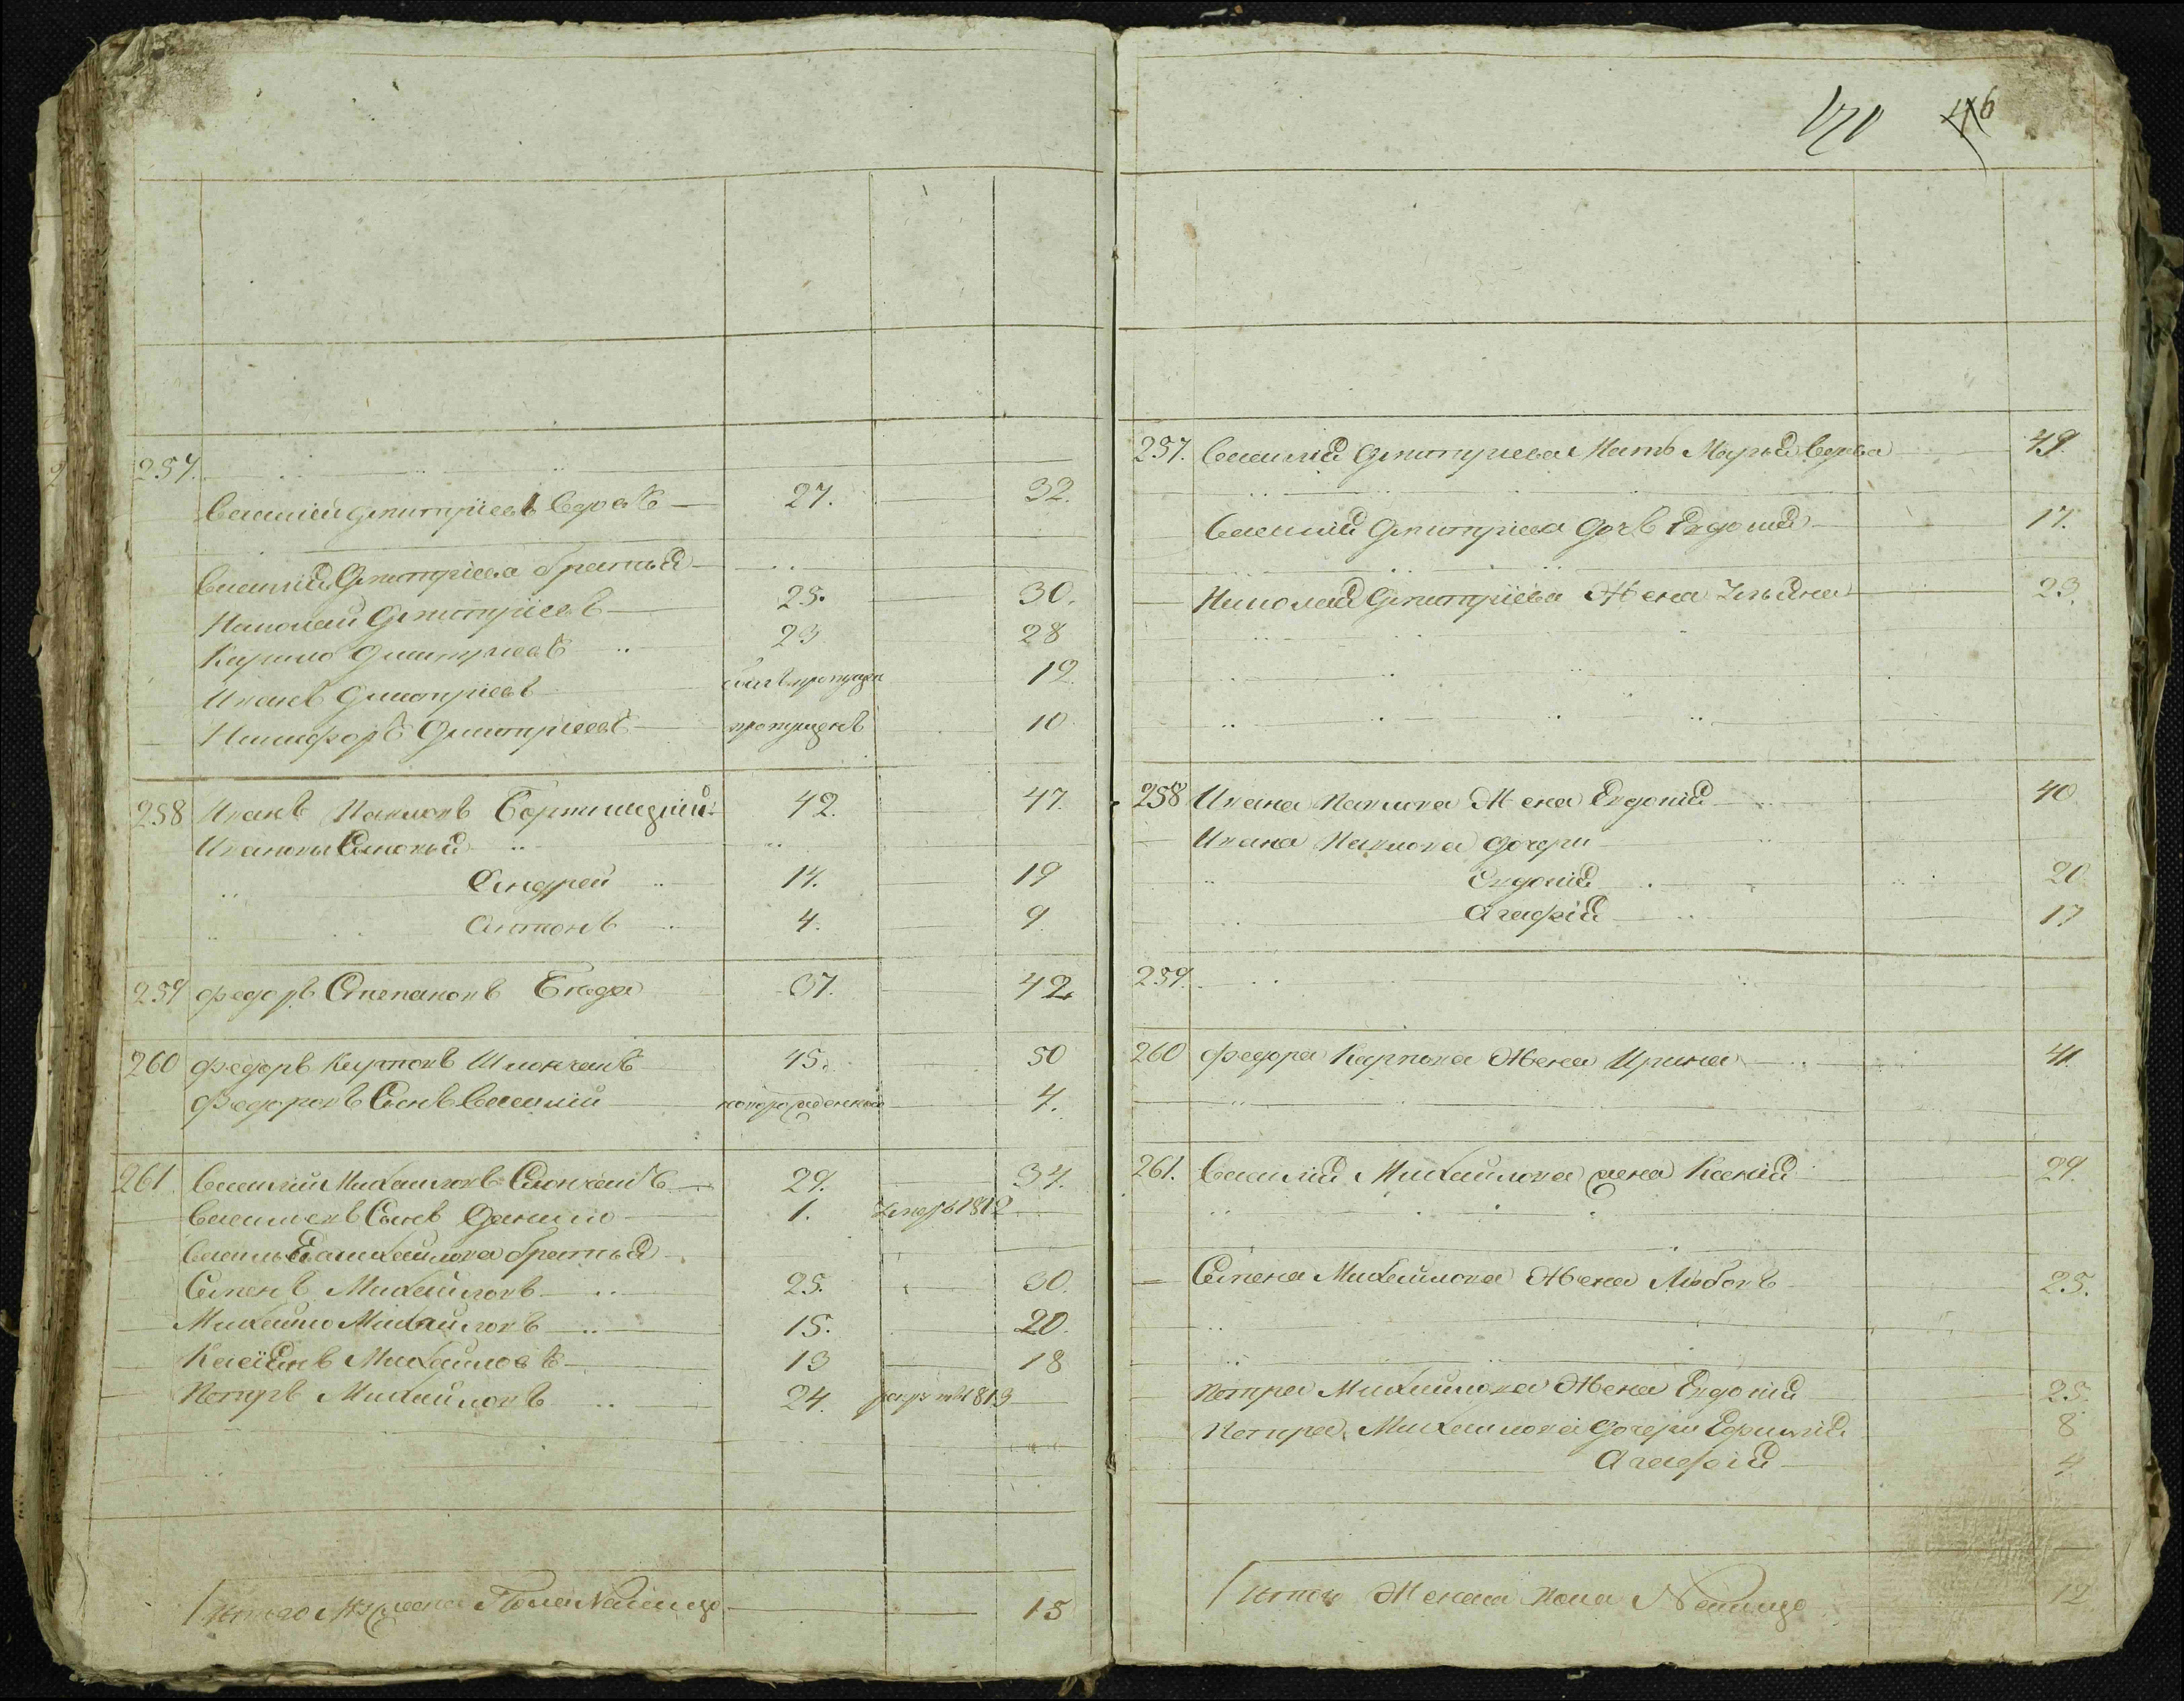 171 46
257.
Василий Дмитриевъ 27. 32.
Василия Дмитриева братья
Николай Дмитриевъ 25. 30.
Кирило Дмитриевъ 23 28
Иванъ Дмитриевъ 12
Никифоръ Дмитриевъ пропущенъ 10
258 Иванъ Павловъ 42. 47.
Ивановы Сыновья
Андрей 14. 19
Антонъ 4. 9
259 Федоръ Степановъ Бнда 37. 42
260 Федоръ Карповъ 45. 50
Федоровъ Сынъ Василий новорожденный 4.
261 Василий Михайловъ 29. 34.
Васильевъ Сынъ Данило 1. 1812
Василья Михайлова братья
Семенъ Михайловъ 25. 30.
Михайло Михайловъ 15. 20.
Касиянъ Михайловъ 13 18
Петръ Михайловъ 24. 1813
Итого Мужеска Пола Налицо 15
257. Василия Дмитриева Мать Марья 49.
Василия Дмитриева дочь Евдокия 17.
Николая Дмитриева Жена Ульяна 23.
258 Ивана Павлова Жена Евдокия 40
Ивана Павлова дочери
Евдокия 20
Агафия 17
259.
260 Федора Карпова Жена Ирина 41.
261. Василия Михайлова жена Ксения 29.
Семена Михайлова Жена Любовь 25.
Петра Михайлова Жена Евдокия 25.
Петра Михайлова дочери Ефимия 8
Агафия 4
Итого Женска Пола Налицо 12